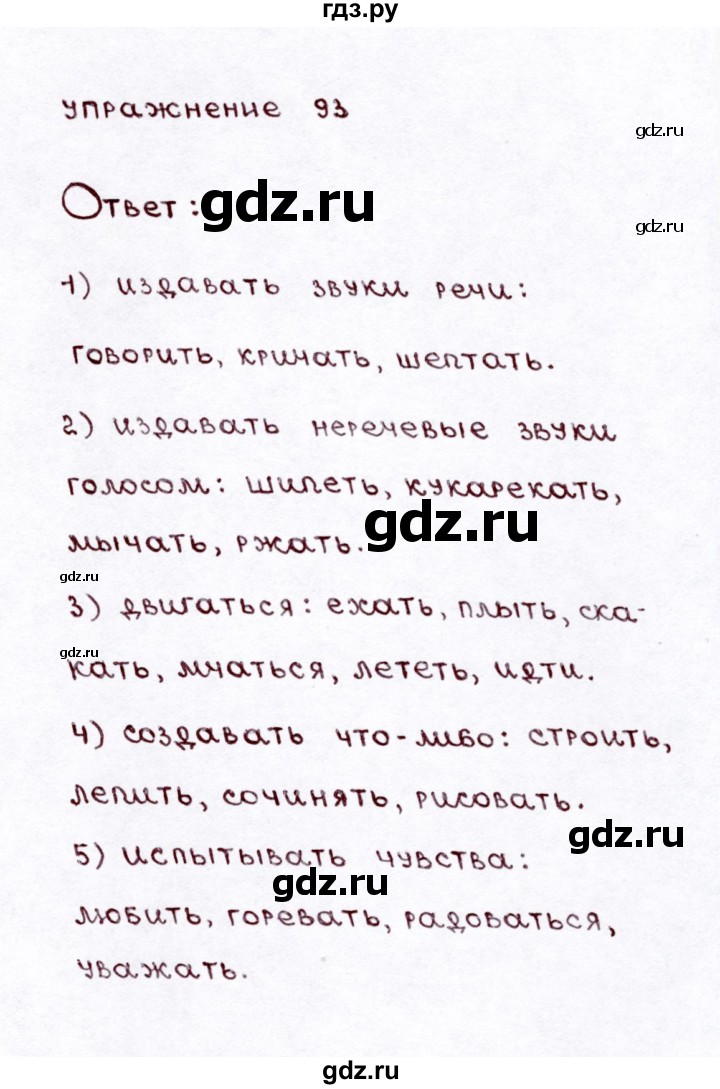 гдз.ру
упражнение 93
gdz.ru
Ответ: gdz.ru
gdz.ru
1) издавать звуки речи:
говорить, кричать, шептать.
2) издавать неречевые звуки
голосом: шипеть, кукарекать,
gdz.ru
мычать, ржать.
gdz.ru
3) двигаться: ехать, плыть, ска-
gdz.ru
кать, мчаться, лететь, идти.
4) создавать что-либо: строить,
лепить, сочинять, рисовать.
gdz.ru
5) испытывать чувства:
gdz.ru
любить, горевать, радоваться,
уважать.
gdz.ru